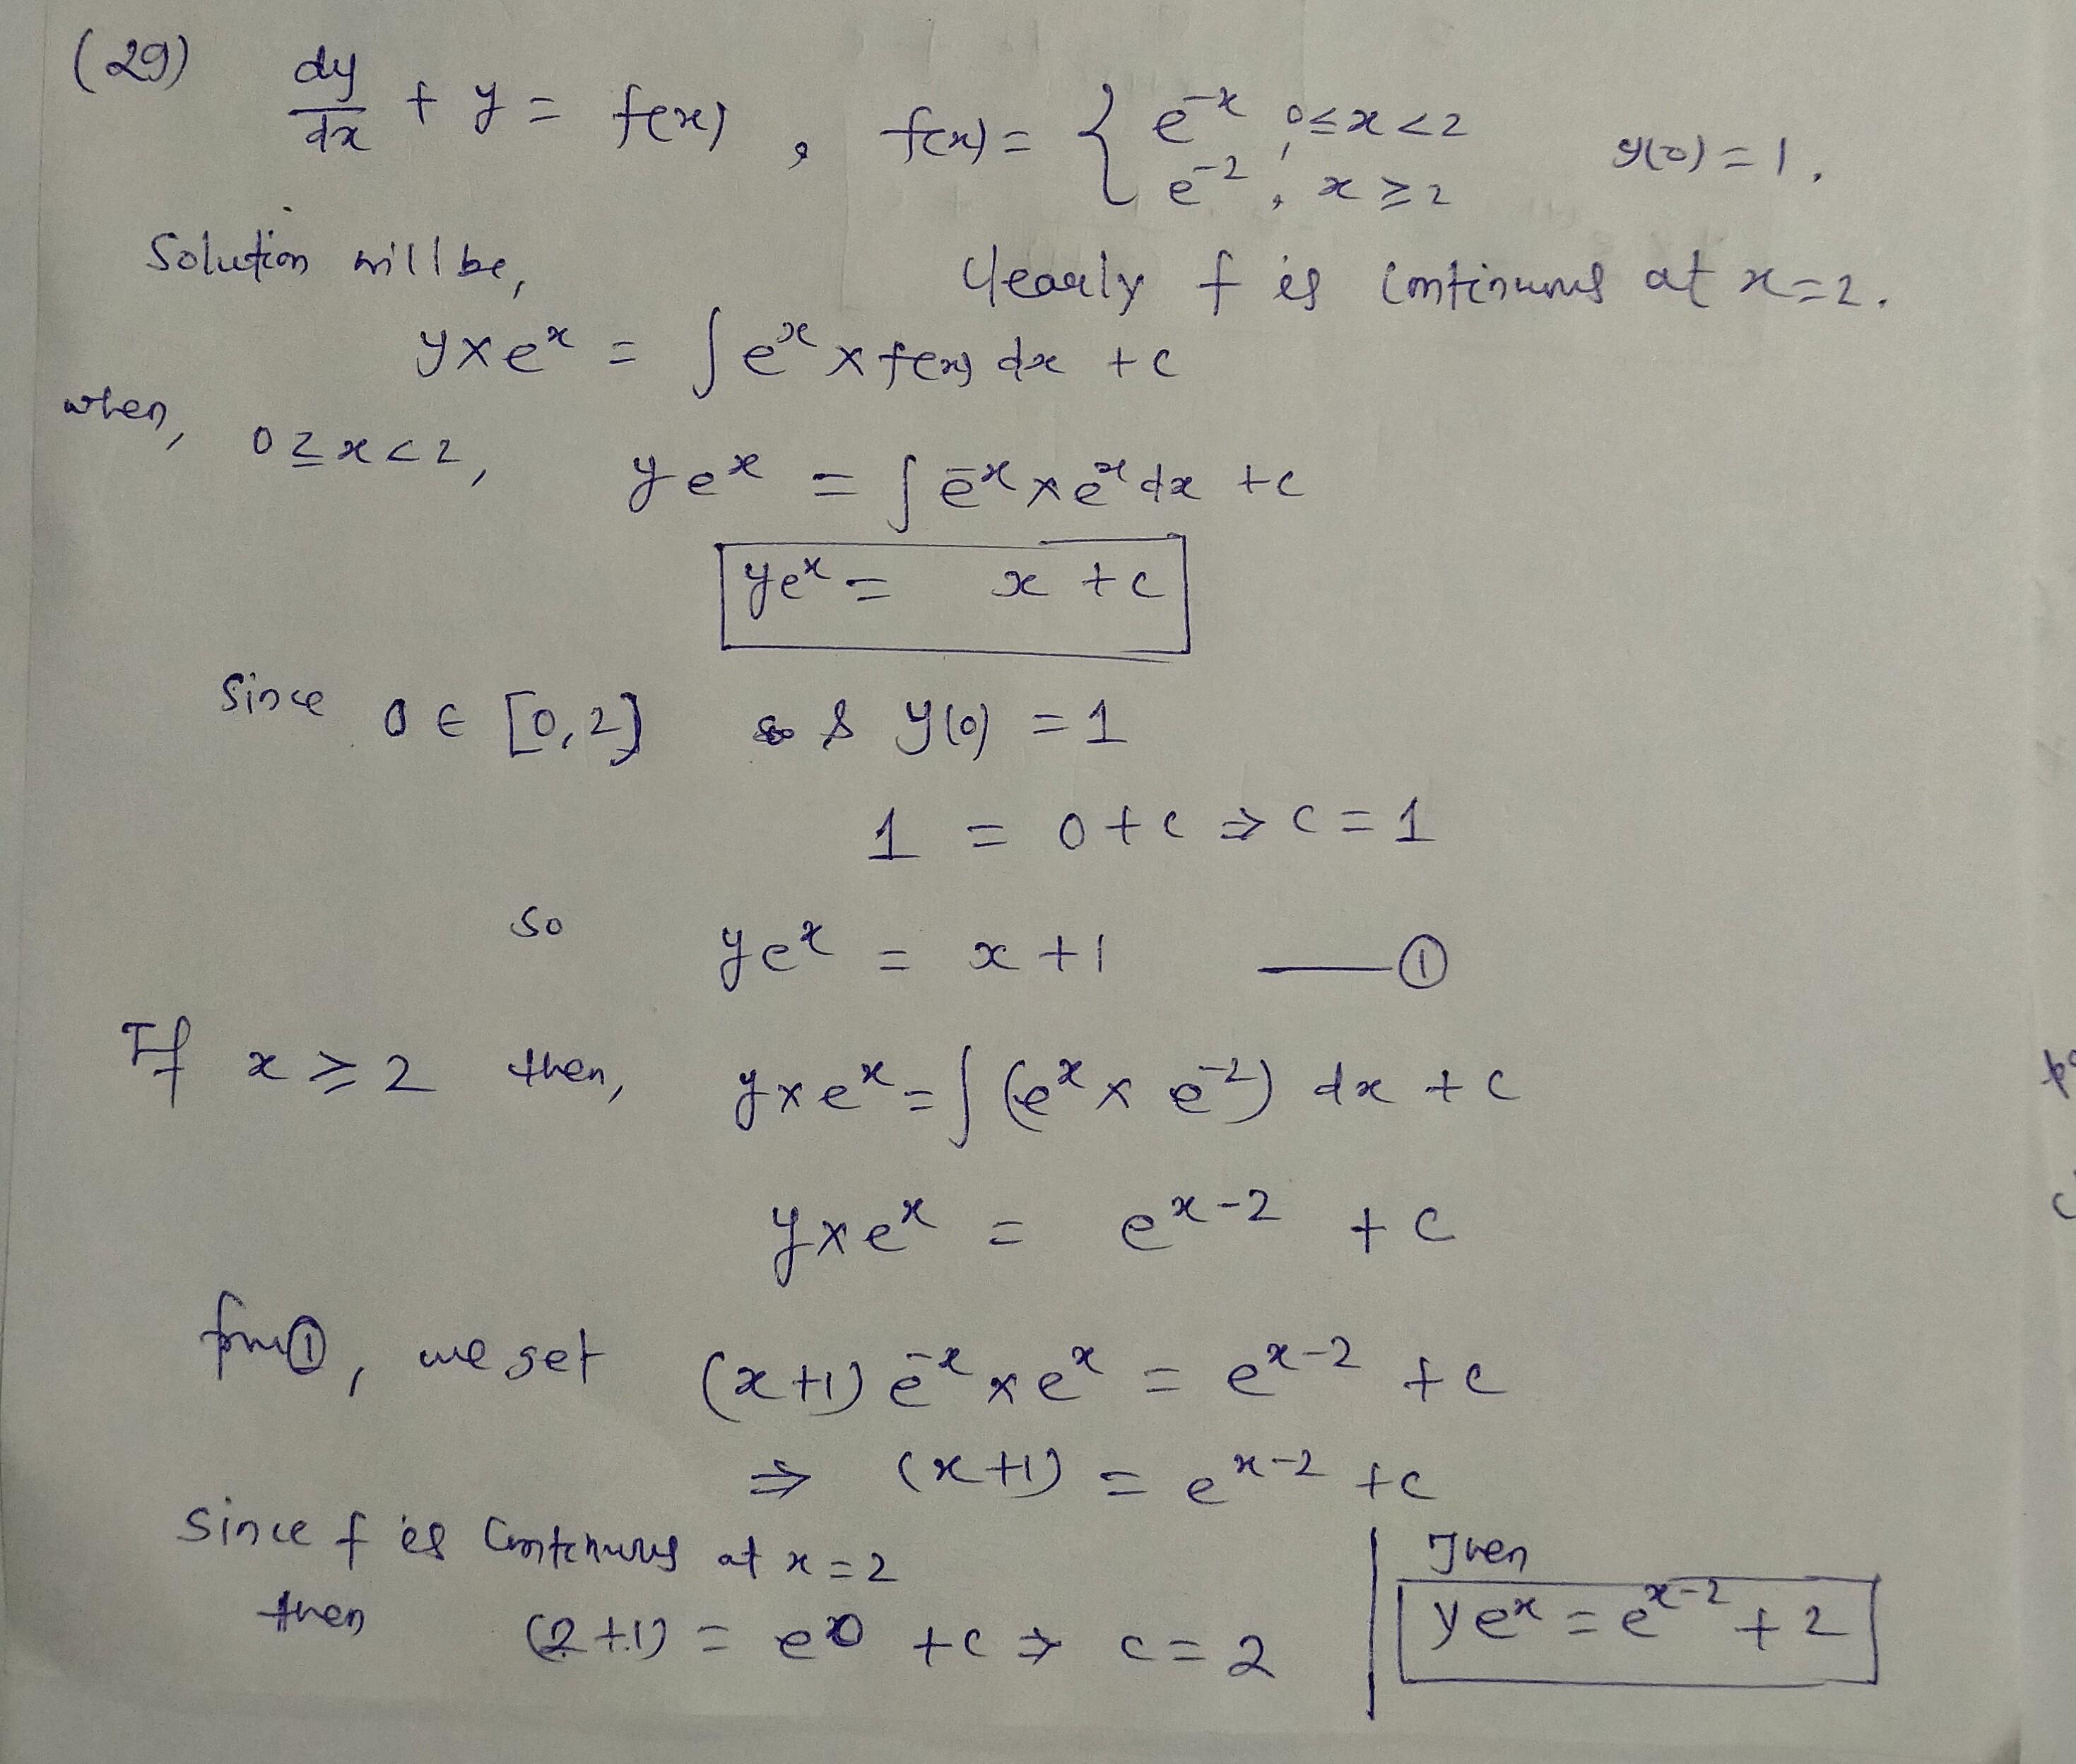 (29) dy/dx + y = f(x) , f(x) = { e^-x , 0≤x<2 y(0) = 1 .
e^-2 , x ≥ 2
Solution will be, Clearly f is continuous at x=2.
y×e^x = ∫e^x × f(x) dx + c
when, 0≥x<2, ye^x = ∫e^-x × e^x dx + c
ye^x = x + c
Since 0 ∈ [0,2) & y(0) = 1
1 = 0 + c ⇒ c = 1
so ye^x = x + 1 —— ①
If x ≥ 2 then, y×e^x = ∫(e^x × e^-2) dx + c
y×e^x = e^x-2 + c
from ①, we get (x+1) e^-x × e^x = e^x-2 + c
⇒ (x+1) = e^x-2 + c
Since f is continuous at x=2
then (2+1) = e^0 + c ⇒ c = 2
Then
ye^x = e^x-2 + 2